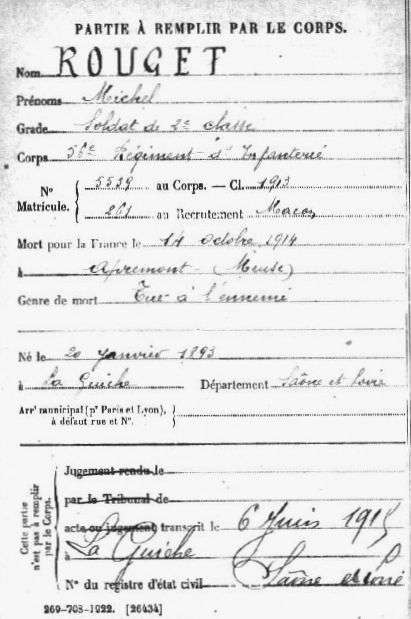 PARTIE À REMPLIR PAR LE CORPS.
Nom ROUGET
Prénoms Michel
Grade Soldat de 2e classe
Corps 56e Régiment d'Infanterie
N° Matricule. { 5539 au Corps. — Cl. 1913
261 au Recrutement Macon
Mort pour la France le 14 octobre 1914
à Apremont (Meuse)
Genre de mort Tué à l'ennemi
Né le 20 janvier 1893
à La Guiche Département Saône et Loire
Arrt municipal (pr Paris et Lyon), }
à défaut rue et N°.
Cette partie n'est pas à remplir par le Corps.
Jugement rendu le
par le Tribunal de
acte ou jugement transcrit le 6 Juin 1915
à La Guiche
N° du registre d'état civil Saône et Loire
269-708-1922. [26434]